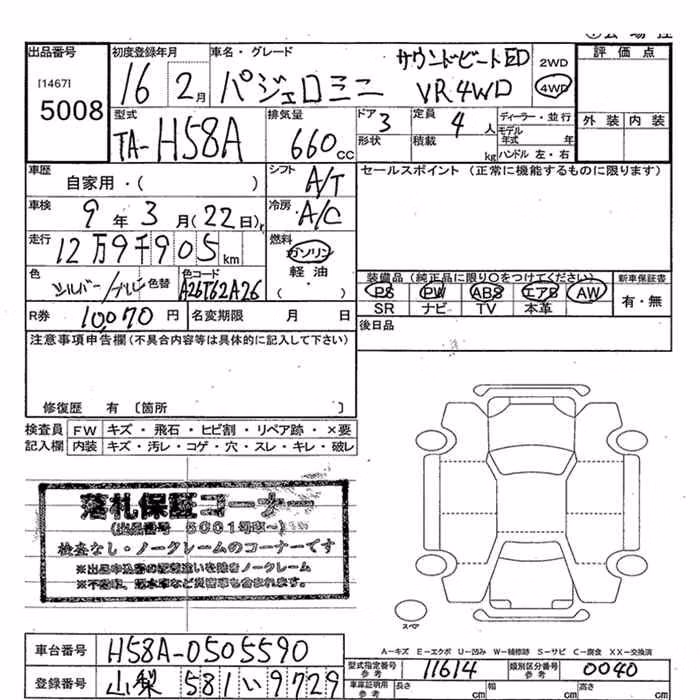 出品番号
[1467]
5008
初度登録年月
16 2月
車名・グレード
サウンドビートED
パジェロミニ VR4WD
2WD
4WD
評価点
外装 内装
型式
TA-H58A
排気量
660cc
ドア 3
形状
定員 4人
積載 kg
ディーラー・並行
モデル年式 年
ハンドル 左・右
車歴
自家用・( )
シフト A/T
セールスポイント (正常に機能するものに限ります)
車検 9年3月(22日)
冷房 A/C
走行 12万9千905km
燃料
ガソリン
軽油
( ・ )
色 シルバー/ 色替
色コード
A26T62A26
装備品(純正品に限り○をつけてください)
新車保証書
PS PW ABS エアB AW
SR ナビ TV 本革
有・無
R券 10,070円
名変期限 月 日
後日品
注意事項申告欄(不具合内容等は具体的に記入して下さい)
修復歴 有〔箇所 〕
検査員記入欄
FW キズ・飛石・ヒビ割・リペア跡・×要
内装 キズ・汚レ・コゲ・穴・スレ・キレ・破レ
落札保証コーナー
(出品番号 5001番~)
検査なし・ノークレームのコーナーです
※不動車、冠水車など災害車も含まれます。
スペア
A−キズ E−エクボ U−凹み W−補修跡 S−サビ C−腐食 XX−交換済
車台番号 H58A-0505590
登録番号 山梨 581 い 9729
型式指定番号 参考 11614
類別区分番号 参考 0040
車庫証明用 参考
長さ cm
幅 cm
高さ cm